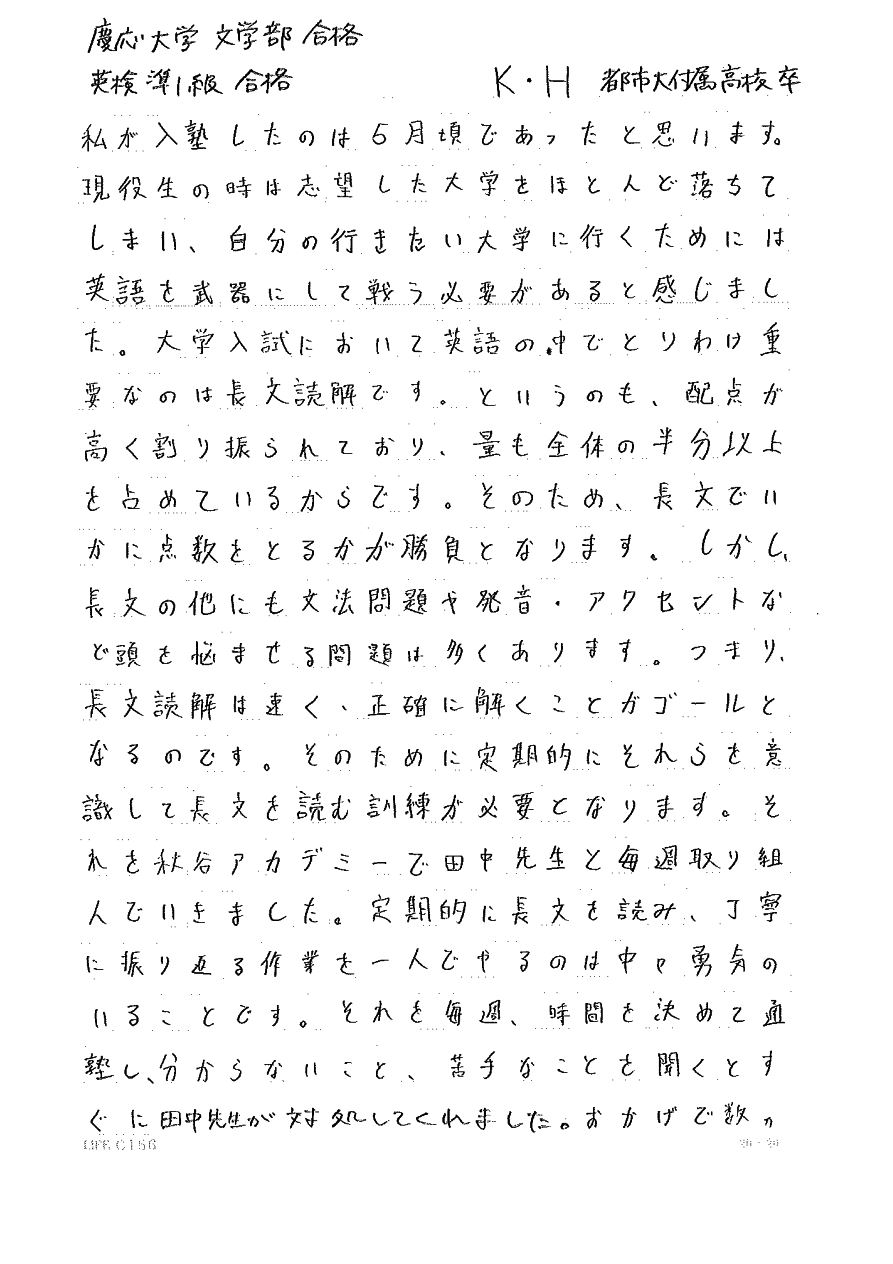 慶応大学 文学部 合格
英検準1級 合格 K・H 都市大付属高校卒
私が入塾したのは6月頃であったと思います。
現役生の時は志望した大学をほとんど落ちて
しまい、自分の行きたい大学に行くためには
英語を武器にして戦う必要があると感じまし
た。大学入試において英語の中でとりわけ重
要なのは長文読解です。というのも、配点が
高く割り振られており、量も全体の半分以上
を占めているからです。そのため、長文でい
かに点数をとるかが勝負となります。しかし、
長文の他にも文法問題や発音・アクセントな
ど頭を悩ませる問題は多くあります。つまり、
長文読解は速く、正確に解くことがゴールと
なるのです。そのために定期的にそれらを意
識して長文を読む訓練が必要となります。そ
れを秋谷アカデミーで田中先生と毎週取り組
んでいきました。定期的に長文を読み、丁寧
に振り返る作業を一人でやるのは中々勇気の
いることです。それを毎週、時間を決めて通
塾し、分からないこと、苦手なことを聞くとす
ぐに田中先生が対処してくれました。おかげで数ヶ
LIFE C156 20×20